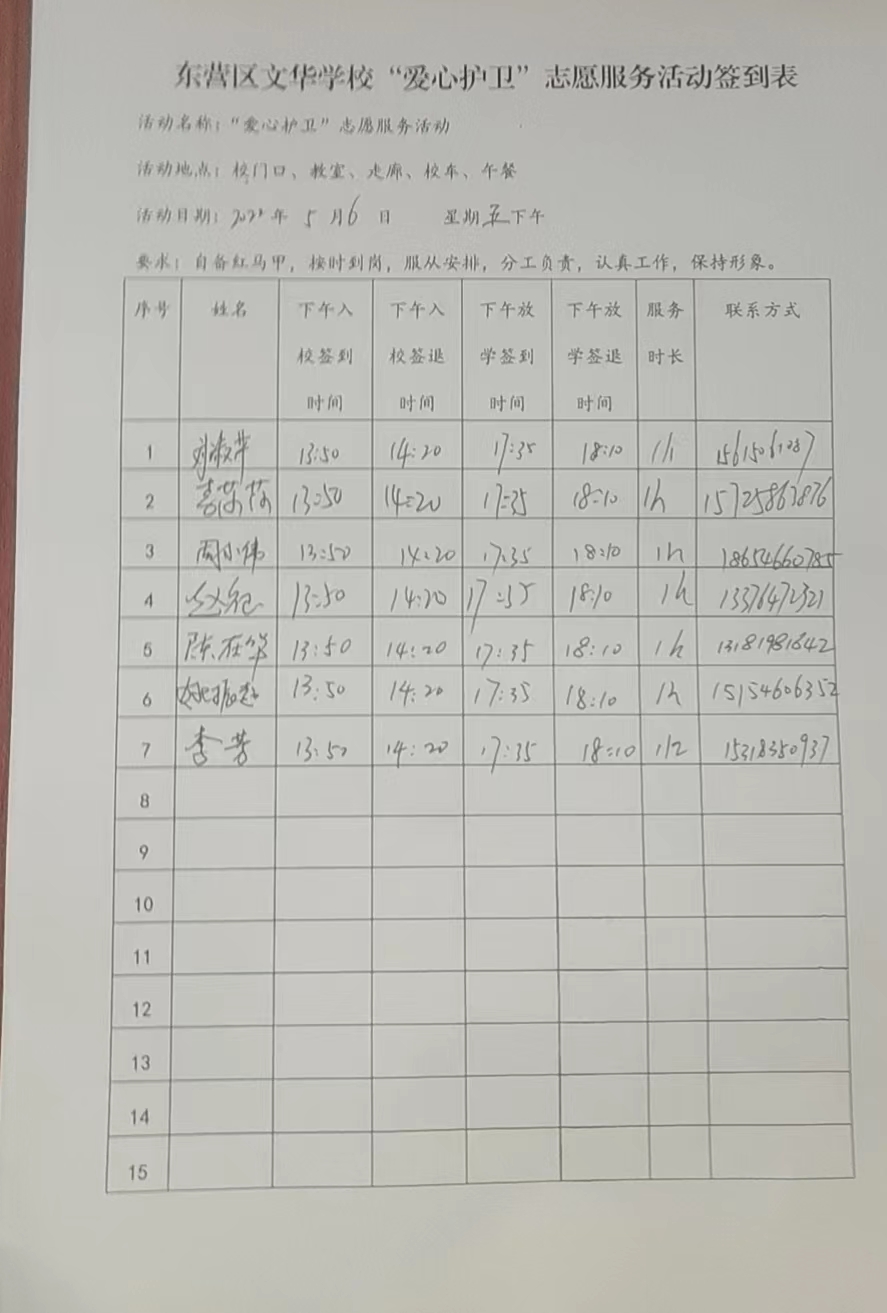 东营区文华学校“爱心护卫”志愿服务活动签到表
活动名称：“爱心护卫”志愿服务活动
活动地点：校门口、教室、走廊、校车、午餐
活动日期： 年 5 月 6 日 星期 五 下午
要求：自备红马甲，按时到岗，服从安排，分工负责，认真工作，保持形象。
序号 姓名 下午入校签到时间 下午入校签退时间 下午放学签到时间 下午放学签退时间 服务时长 联系方式
1 13:50 14:20 17:35 18:10 1h
2 13:50 14:20 17:35 18:10 1h 15725867876
3 周小伟 13:50 14:20 17:35 18:10 1h 18654660785
4 13:50 14:20 17:35 18:10 1h 13376472321
5 陈在华 13:50 14:20 17:35 18:10 1h 13181981642
6 13:50 14:20 17:35 18:10 1h 15154606352
7 李芳 13:50 14:20 17:35 18:10 1h 15318350937
8
9
10
11
12
13
14
15